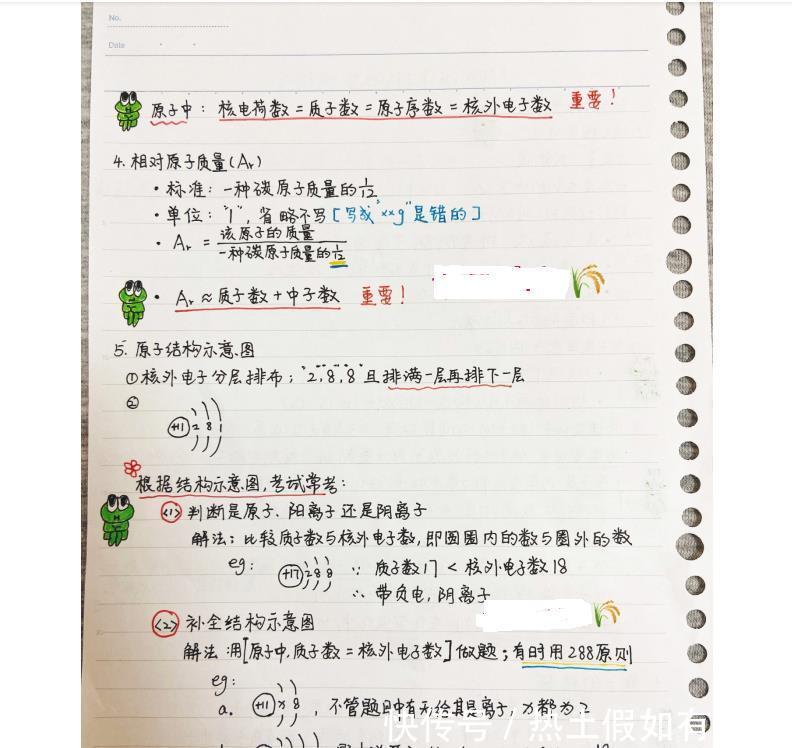 No.
Date
原子中：核电荷数=质子数=原子序数=核外电子数 重要！
4. 相对原子质量(Ar)
• 标准：一种碳原子质量的1/12
• 单位："1"，省略不写[写成"××g"是错的]
• Ar = 该原子的质量
一种碳原子质量的1/12
• Ar≈质子数+中子数 重要！
5. 原子结构示意图
①核外电子分层排布："2,8,8"且排满一层再排下一层
②
+11 2 8 1
根据结构示意图,考试常考：
<1> 判断是原子、阳离子还是阴离子
解法：比较质子数与核外电子数,即圆圈内的数与圈外的数
eg: +17 2 8 8 ∵ 质子数17 < 核外电子数18
∴ 带负电,阴离子
<2> 补全结构示意图
解法:用[原子中,质子数=核外电子数]做题；有时用288原则
eg:
a. +11 x 8 ，不管题目中有无给其是离子，x都为2
快传号 / 热土假如有